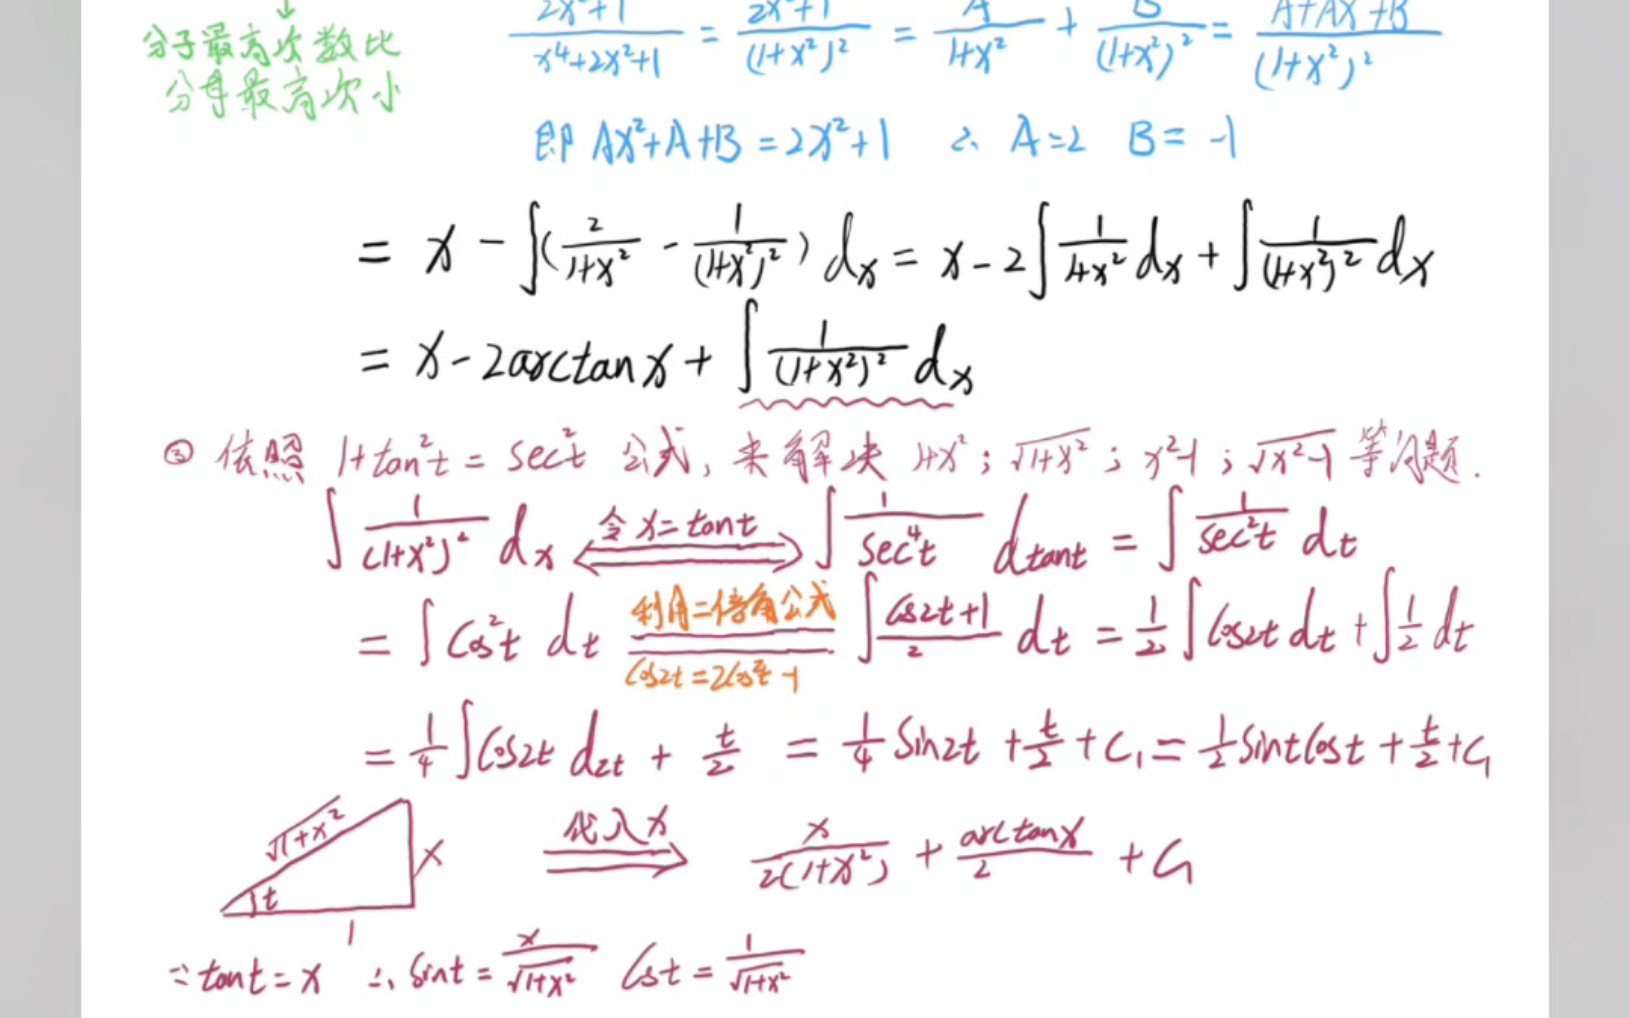 分子最高次数比
分母最高次小
(2x²+1)/(x⁴+2x²+1) = (2x²+1)/((1+x²)²) = A/(1+x²) + B/((1+x²)²) = (A+Ax²+B)/((1+x²)²)
即 Ax²+A+B=2x²+1 ∴ A=2 B=-1
= x - ∫(2/(1+x²) - 1/((1+x²)²))dx = x-2∫1/(1+x²) dx + ∫1/((1+x²)²) dx
= x-2arctanx + ∫1/((1+x²)²) dx
③ 依照 1+tan²t = sec²t 公式, 来解决 1+x²; √(1+x²); x²-1; √(x²-1) 等问题.
∫1/((1+x²)²) dx 令 x=tant ∫1/(sec⁴t) dtant = ∫1/(sec²t) dt
= ∫cos²t dt 利用二倍角公式 cos2t=2cos²t-1 ∫(cos2t+1)/2 dt = 1/2∫cos2t dt + ∫1/2 dt
= 1/4∫cos2t d2t + t/2 = 1/4 sin2t + t/2 + C₁ = 1/2 sintcost + t/2 + C₁
√(1+x²) x t 1
代入x x/(2(1+x²)) + arctanx/2 + C₁
∵ tant=x ∴ sint = x/√(1+x²) cost = 1/√(1+x²)